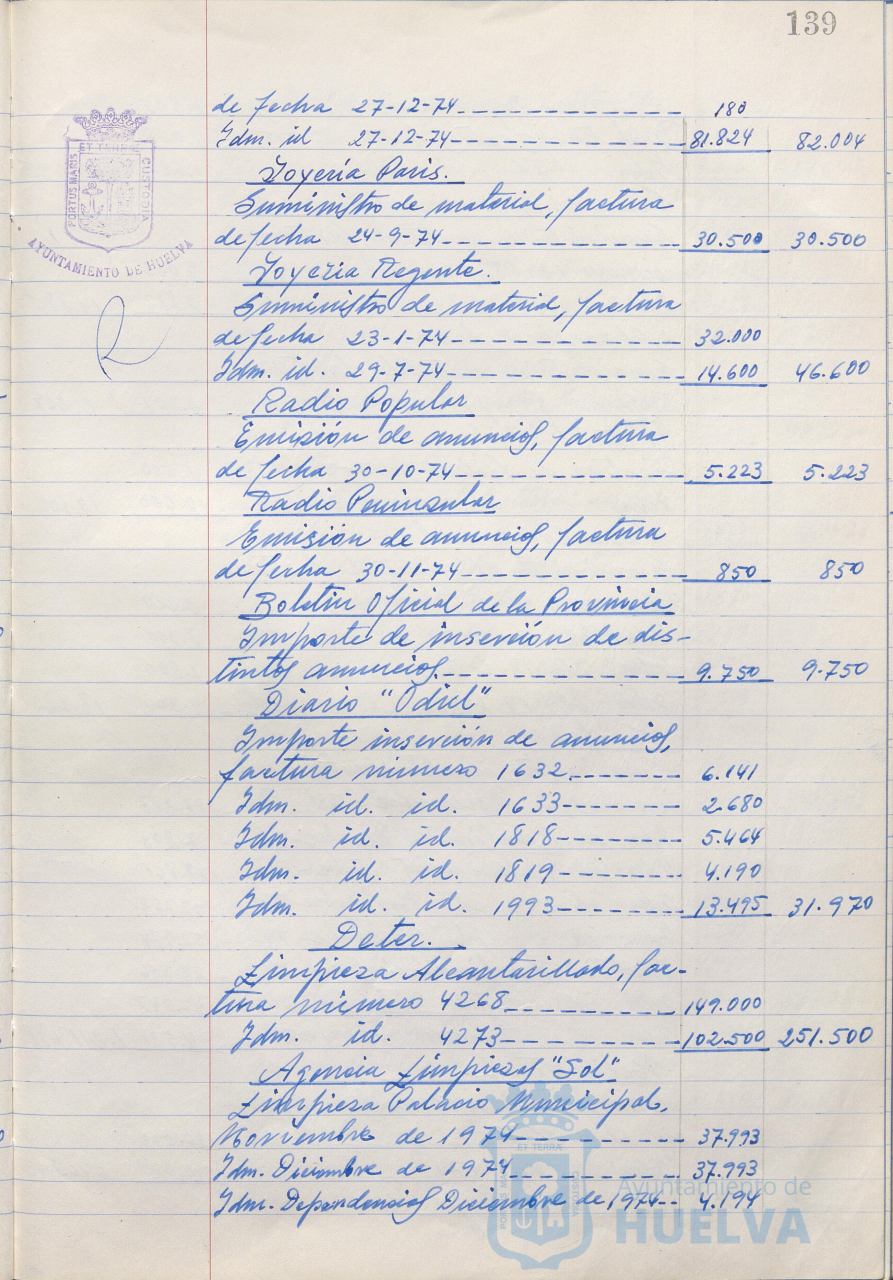 139
de fecha 27-12-74 ------------- 180
Idm. id 27-12-74 ------------- 81.824 82.004
Joyería Paris.
Suministro de material, factura
de fecha 24-9-74 ------------- 30.500 30.500
Joyeria Regente.
Suministro de material, factura
de fecha 23-1-74 ------------- 32.000
Idm. id. 29-7-74 ------------- 14.600 46.600
Radio Popular
Emisión de anuncios, factura
de fecha 30-10-74 ------------- 5.223 5.223
Radio Peninsular
Emisión de anuncios, factura
de fecha 30-11-74 ------------- 850 850
Boletin Oficial de la Provincia
Importe de inserción de dis-
tintos anuncios ------------- 9.750 9.750
Diario "Odiel"
Importe inserción de anuncios,
factura número 1632 ------- 6.141
Idm. id. id. 1633 ------- 2.680
Idm. id. id. 1818 ------- 5.464
Idm. id. id. 1819 ------- 4.190
Idm. id. id. 1993 ------- 13.495 31.970
Deter.
Limpieza Alcantarillado, fac-
tura número 4268 --------- 149.000
Idm. id. 4273 --------- 102.500 251.500
Agencia Limpiezas "Sol"
Limpieza Palacio Municipal,
Noviembre de 1974 --------- 37.993
Idm. Diciembre de 1974 --------- 37.993
Idm. Dependencias Diciembre de 1974 -- 4.194
PORTUS MARIS ET TERRAE CUSTODIA
AYUNTAMIENTO DE HUELVA
Ayuntamiento de
HUELVA